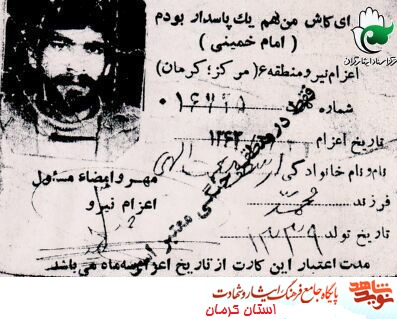 ای کاش من هم یک پاسدار بودم
( امام خمینی )
اعزام نیرو منطقه ۶ ( مرکز؛ کرمان )
شماره
تاریخ اعزام ۱۳۶۲
نام و نام خانوادگی
فرزند
تاریخ تولد ۱۳۳۹
مهر و امضاء مسئول
اعزام نیرو
فقط در منطقه جنگی معتبر است
مدت اعتبار این کارت از تاریخ اعزام سه ماه می باشد
نوید شاهد
پایگاه جامع فرهنگ ایثار و شهادت
استان کرمان